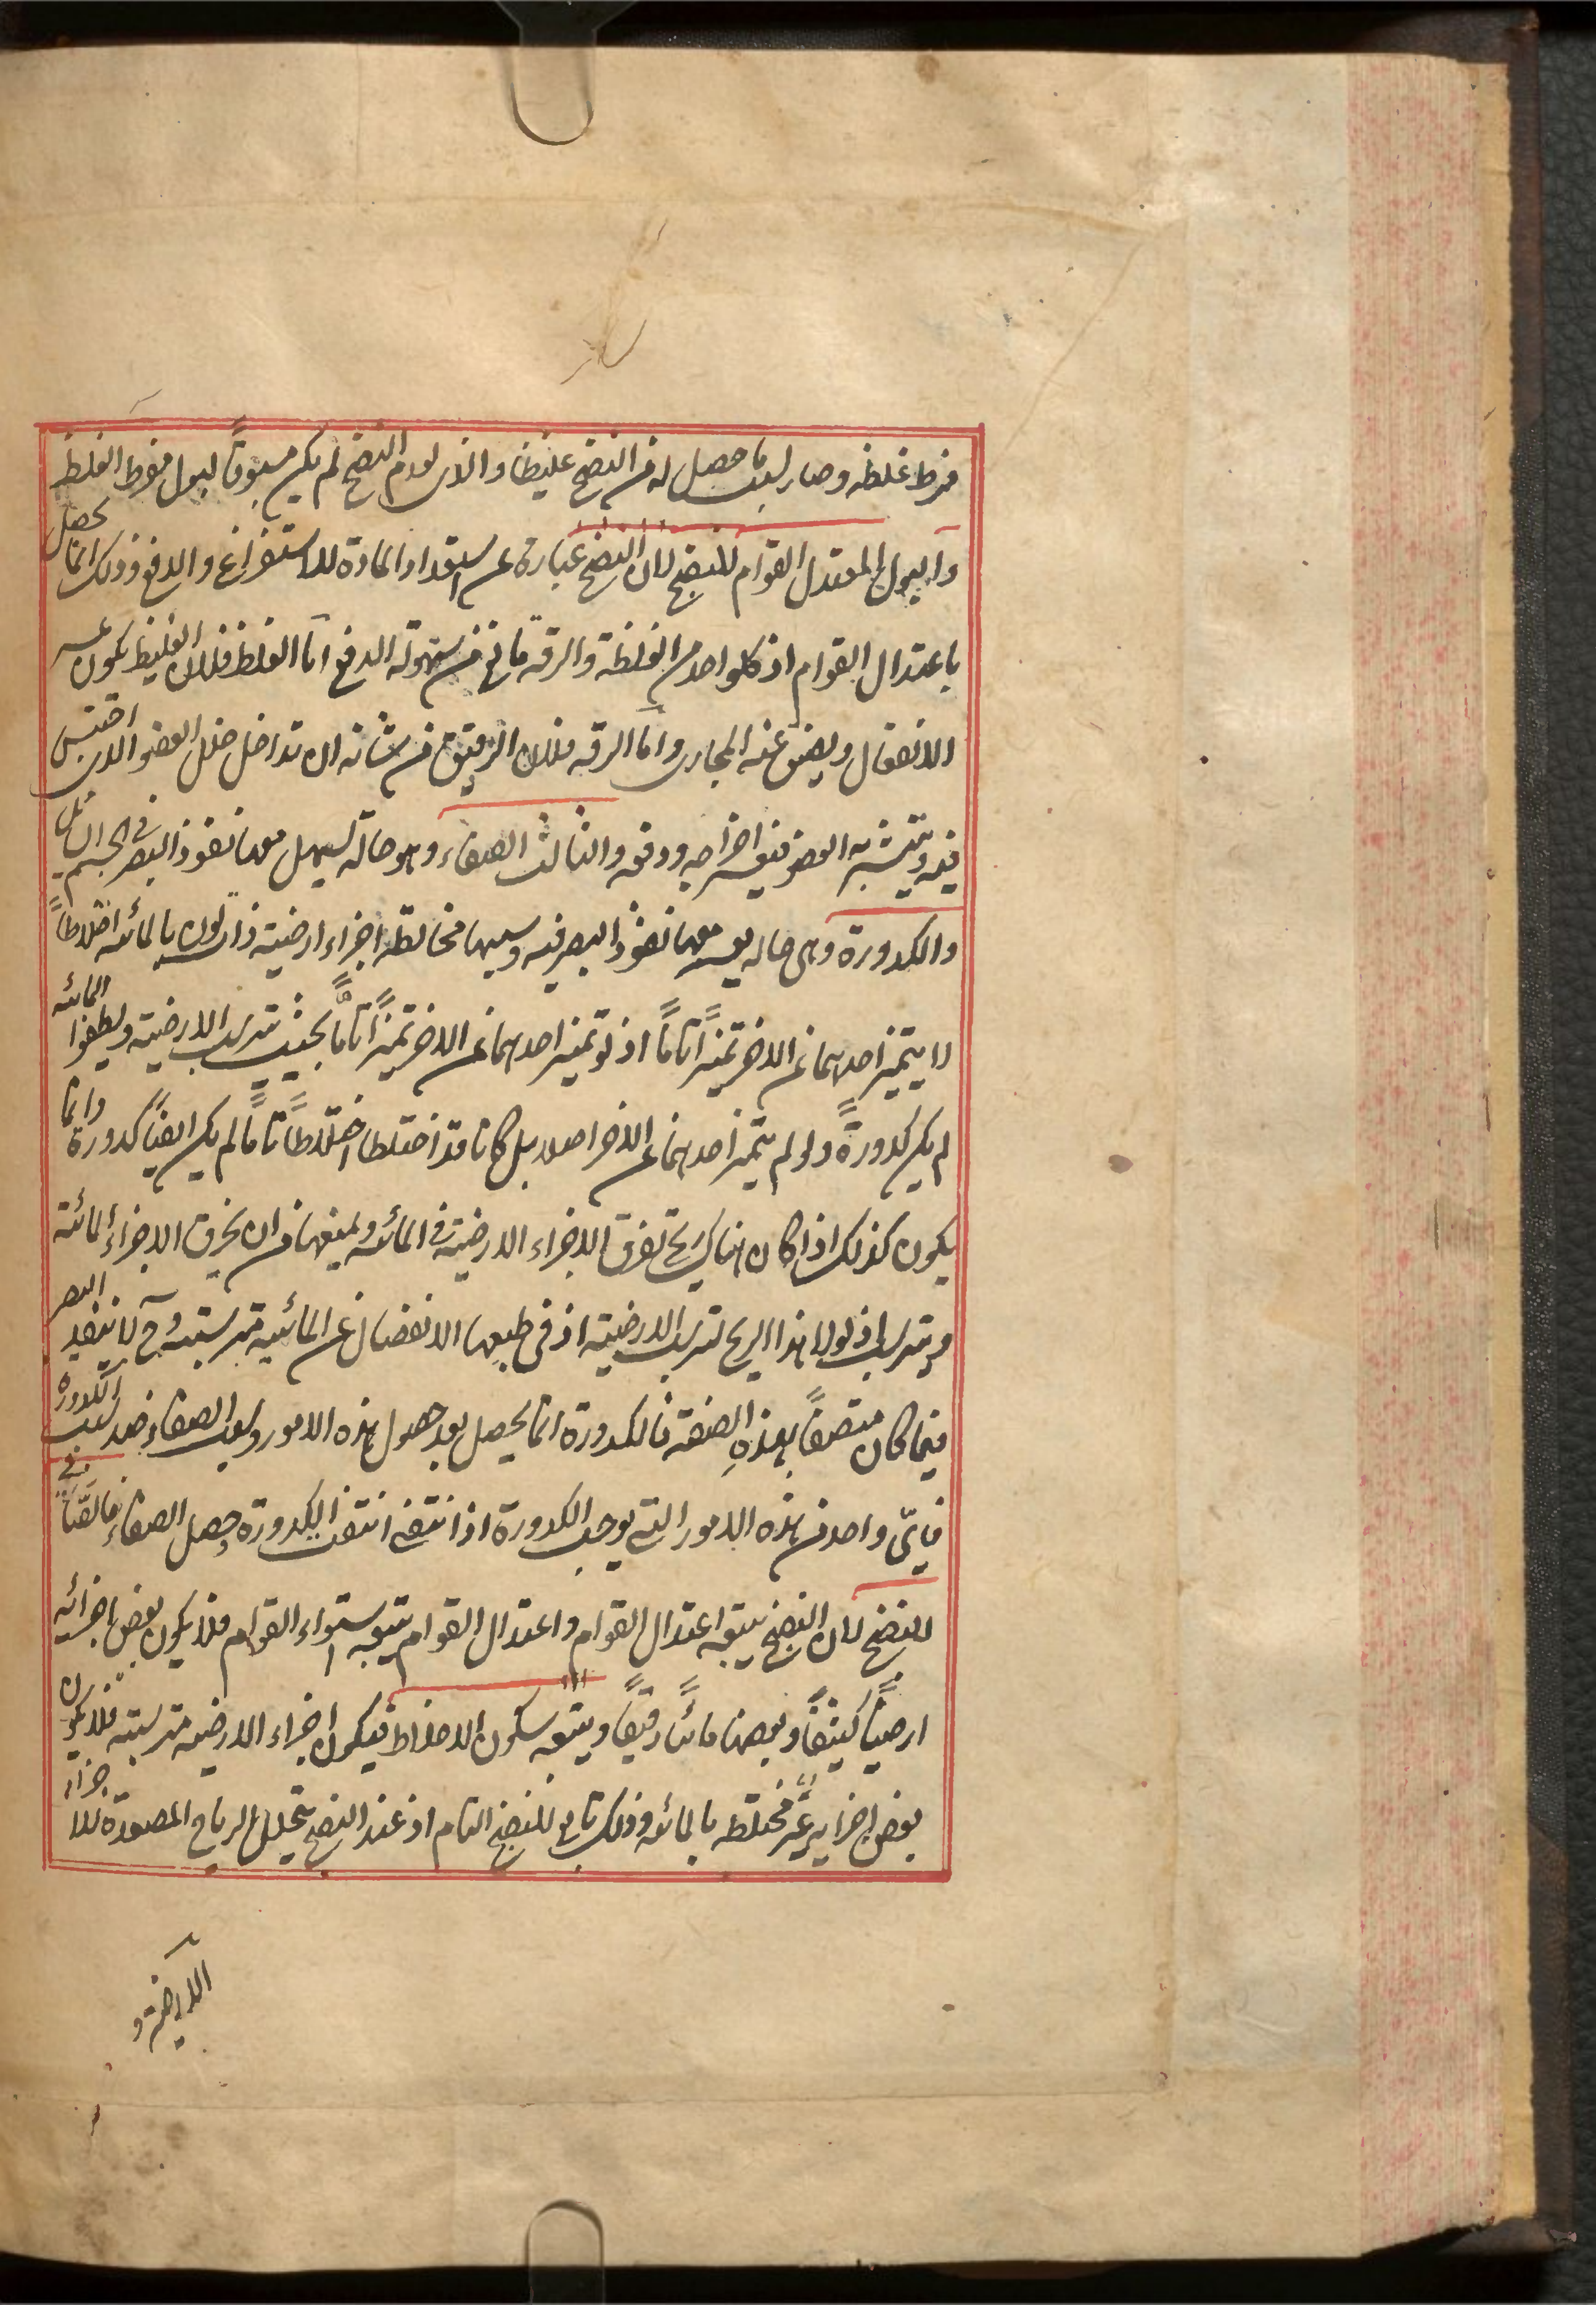 فرط غلظه وصار بسبب ما حصل له من النضج غليظا والذى لعدم النضج لم يكن مسبوقاً لبول مفرط الغلظ
والبول المعتدل القوام للنضج لان النضج عبارة عن استعداد المادة للاستفراغ والدفع وذلك انما يحصل
باعتدال القوام اذ كلواحد من الغلظة والرقة مانع من سهولة الدفع اما الغلظ فلان الغليظ يكون عسر
الانفعال ويضيق عنه المجارى واما الرقه فلان الرقيق من شانه ان تداخل خلل العضو الذى احتبس
فيه ويتشربه العضو فيعسر اخراجه ودفعه والثالث الصفاء وهو حالة يسهل معها نفوذ البصر فى الجسم السائل
والكدورة وهى حاله يعسر معها نفوذ البصر فيه وسببها مخالطه اجزاء ارضية ذات لون بالمائيه اختلاطاً
لا يتميز احدهما عن الاخر تميزاً تاماً اذ لو تميز احدهما عن الاخر تميزاً تاماً بحيث تترسب الارضية ويطفوا المائيه
لم يكن كدورةً ولو لم يتميز احدهما عن الاخر اصلا بل كانا قد اختلطا اختلاطاً تاماً لم يكن ايضاً كدورة وانما
يكون كذلك اذا كان هناك ريح تفرق الاجزاء الارضية فى المائيه وتمنعها من ان يخرق الاجزاء المائية
ويترسب اذ لولا هذا الريح لترسب الارضية اذ فى طبعها الانفصال عن المائية مترسبة وح لا ينفذ البصر
فيما كان متصفاً بهذهِ الصفة فالكدورة انما يحصل بعد حصول هذه الامور وسبب الصفاء ضد سبب الكدورة
فاىّ واحد من هذه الامور التى يوجب الكدورة اذا انتفى انتفت الكدورة وحصل الصفاء فالصافى
للنضج لان النضج يتبعه اعتدال القوام واعتدال القوام يتبعه استواء القوام فلا يكون بعض اجزائه
ارضياً كثيفاً وبعضها مائياً رقيقاً ويتبعه سكون الاخلاط فيكون اجزاء الارضيه مترسبة فلا يكون
بعض اجزايه غير مختلطه بالمائيه وذلك تابع للنضج التام اذ عند النضج يتحلل الرياح المصعدة للاجزاء
الارضية و